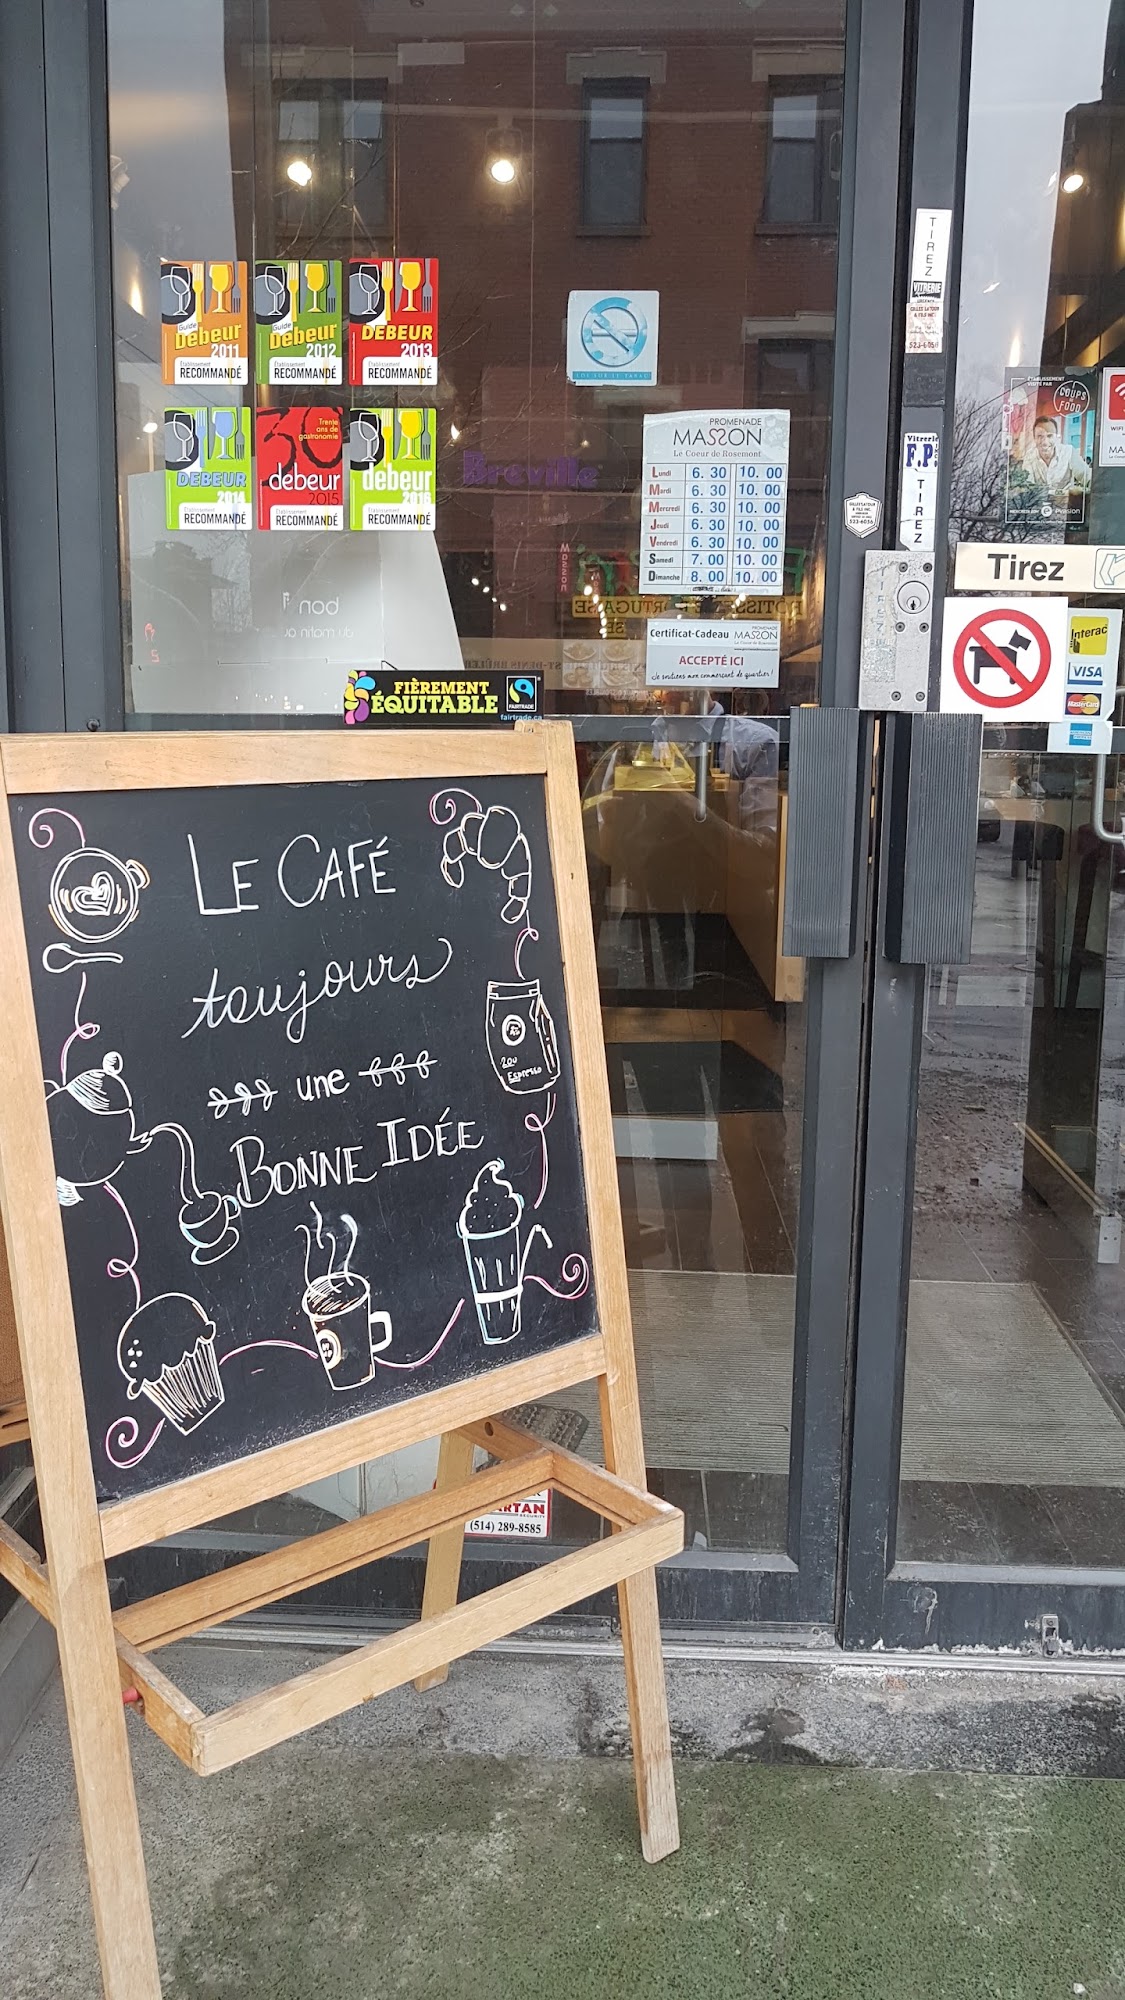 Guide
Debeur
2011
Établissement
RECOMMANDÉ
Guide
Debeur
2012
Établissement
RECOMMANDÉ
DEBEUR
2013
Établissement
RECOMMANDÉ
DEBEUR
2014
Établissement
RECOMMANDÉ
30
Trente
ans de
gastronomie
debeur
2015
Établissement
RECOMMANDÉ
debeur
2016
Établissement
RECOMMANDÉ
Breville
LOI SUR LE TABAC
PROMENADE
MASSON
Le Coeur de Rosemont
Lundi 6. 30 10. 00
Mardi 6. 30 10. 00
Mercredi 6. 30 10. 00
Jeudi 6. 30 10. 00
Vendredi 6. 30 10. 00
Samedi 7. 00 10. 00
Dimanche 8. 00 10. 00
Certificat-Cadeau
PROMENADE
MASSON
Le Coeur de Rosemont
ACCEPTÉ ICI
Je soutiens mon commerçant de quartier!
FIÈREMENT
ÉQUITABLE
FAIRTRADE
fairtrade.ca
TIREZ
VITRERIE
GILLES LATOUR
& FILS INC.
523-6056
Vitrerie
F.P.
TIREZ
523-6056
ÉTABLISSEMENT
VISITÉ PAR
COUPS
FOOD
évasion
WIFI
Tirez
Interac
VISA
MasterCard
LE CAFÉ
toujours
une
BONNE IDÉE
200
Espresso
ARTAN
SECURITY
(514) 289-8585